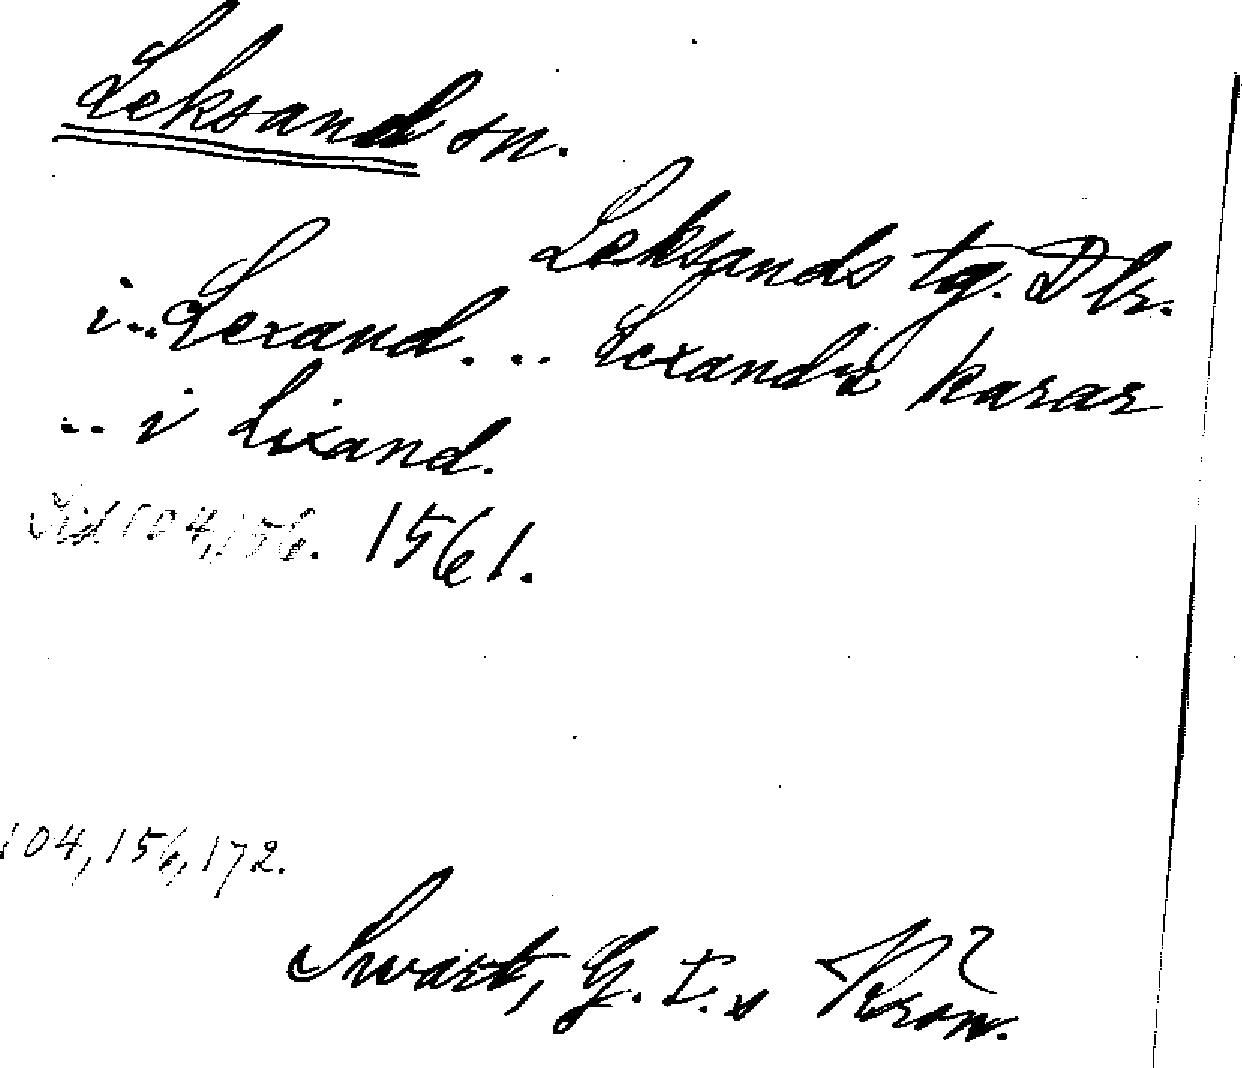 Leksand sn.
Leksands tg. Dlr.
i.. Lexand... Lexandz karar
.. i Lixand.
104, 156. 1561.
104, 156, 172.
Swart, G. I:s Krön.